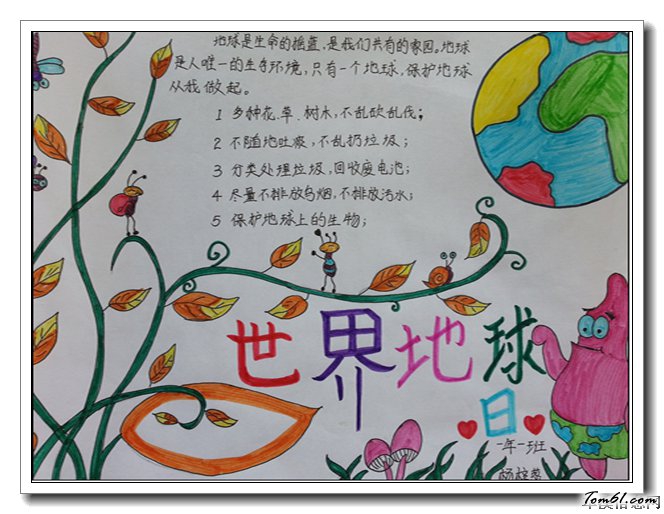 地球是生命的摇蓝,是我们共有的家园。地球
是人唯一的生存环境,只有一个地球,保护地球
从我做起。
1 多种花.草.树木,不乱砍乱伐;
2 不随地吐痰,不乱扔垃圾;
3 分类处理垃圾,回收废电池;
4 尽量不排放乌烟,不排放污水;
5 保护地球上的生物;
世界地球
日
一年一班
杨
Tom61.com